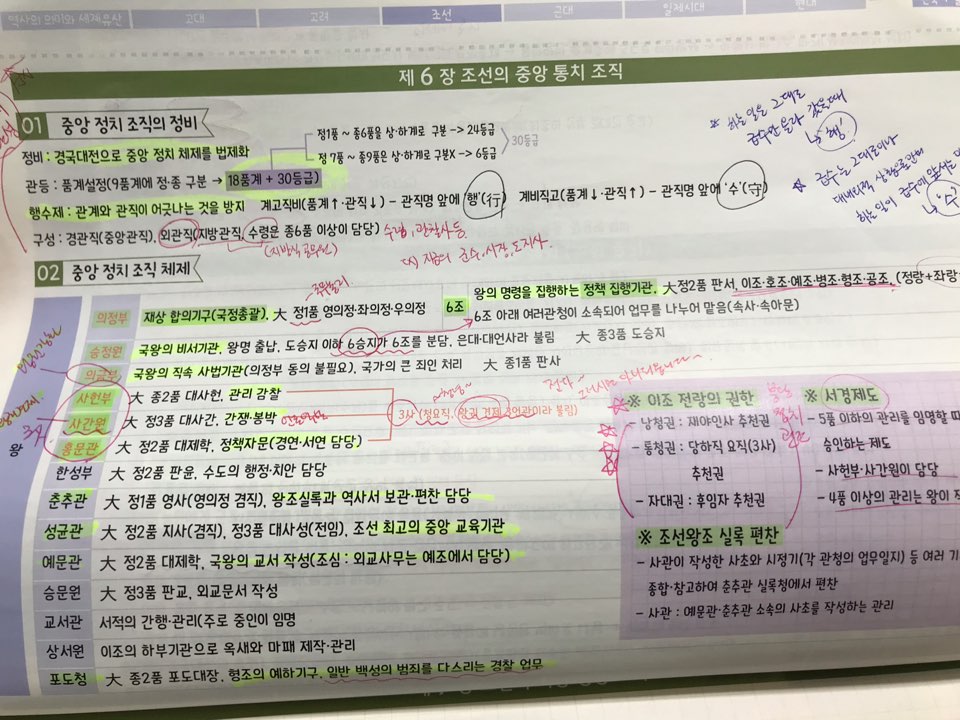 역사의 의미와 세계유산 고대 고려 조선 근대 일제시대 현대
제 6 장 조선의 중앙 통치 조직
01 중앙 정치 조직의 정비
정비 : 경국대전으로 중앙 정치 체제를 법제화
정1품 ~ 종6품을 상·하계로 구분 -> 24등급
정 7품 ~ 종9품은 상·하계로 구분X -> 6등급
30등급
관등 : 품계설정(9품계에 정·종 구분 → 18품계 + 30등급)
행수제 : 관계와 관직이 어긋나는 것을 방지 계고직비(품계↑·관직↓) – 관직명 앞에 행'(行) 계비직고(품계↓·관직↑) – 관직명 앞에 '수'(守)
구성 : 경관직(중앙관직), 외관직(지방관직, 수령은 종6품 이상이 담당) 수령, 관찰사 등
(지방직 공무원)
지금의 군수, 시장, 도지사.
※ 하는일은 그대로
급수만 올라 갔을때
'행'
급수는 그대로이나
하는일이
'수'
02 중앙 정치 조직 체제
의정부 재상 합의기구(국정총괄), 大 정1품 영의정·좌의정·우의정
6조 왕의 명령을 집행하는 정책 집행기관, 大정2품 판서, 이조·호조·예조·병조·형조·공조, (정랑+좌랑
6조 아래 여러관청이 소속되어 업무를 나누어 맡음(속사·속아문)
승정원 국왕의 비서기관, 왕명 출납, 도승지 이하 6승지가 6조를 분담, 은대·대언사라 불림 大 종3품 도승지
의금부 국왕의 직속 사법기관(의정부 동의 불필요), 국가의 큰 죄인 처리 大 종1품 판사
사헌부 大 종2품 대사헌, 관리 감찰
사간원 大 정3품 대사간, 간쟁·봉박
3사 (청요직, 왕권 견제, 언관이라 불림)
홍문관 大 정2품 대제학, 정책자문(경연·서연 담당)
왕
3사
한성부 大 정2품 판윤, 수도의 행정·치안 담당
춘추관 大 정1품 영사(영의정 겸직), 왕조실록과 역사서 보관·편찬 담당
성균관 大 정2품 지사(겸직), 정3품 대사성(전임), 조선 최고의 중앙 교육기관
예문관 大 정2품 대제학, 국왕의 교서 작성(조심 : 외교사무는 예조에서 담당)
승문원 大 정3품 판교, 외교문서 작성
교서관 서적의 간행·관리(주로 중인이 임명
상서원 이조의 하부기관으로 옥새와 마패 제작·관리
포도청 大 종2품 포도대장, 형조의 예하기구, 일반 백성의 범죄를 다스리는 경찰 업무
※ 이조 전랑의 권한
– 낭청권 : 재야인사 추천권
– 통청권 : 당하직 요직(3사)
추천권
– 자대권 : 후임자 추천권
붕당
정치
※ 서경제도
– 5품 이하의 관리를 임명할 때
승인하는 제도
– 사헌부·사간원이 담당
– 4품 이상의 관리는 왕이 직
※ 조선왕조 실록 편찬
– 사관이 작성한 사초와 시정기(각 관청의 업무일지) 등 여러 기
종합·참고하여 춘추관 실록청에서 편찬
– 사관 : 예문관·춘추관 소속의 사초를 작성하는 관리